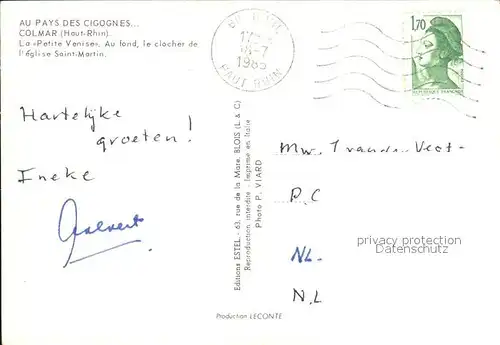 AU PAYS DES CIGOGNES...
COLMAR (Haut-Rhin).
La «Petite Venise». Au fond, le clocher de
l'église Saint-Martin.
18-7
1985
HAUT RHIN
1,70
REPUBLIQUE FRANÇAISE
Hartelijke
groeten!
Ineke
Editions ESTEL - 63, rue de la Mare, BLOIS (L. & C)
Reproduction interdite - Imprimé en Italie
Photo P. VIARD
Mw.
P.C
NL.
N.L
privacy protection
veikkos.com
Production LECONTE